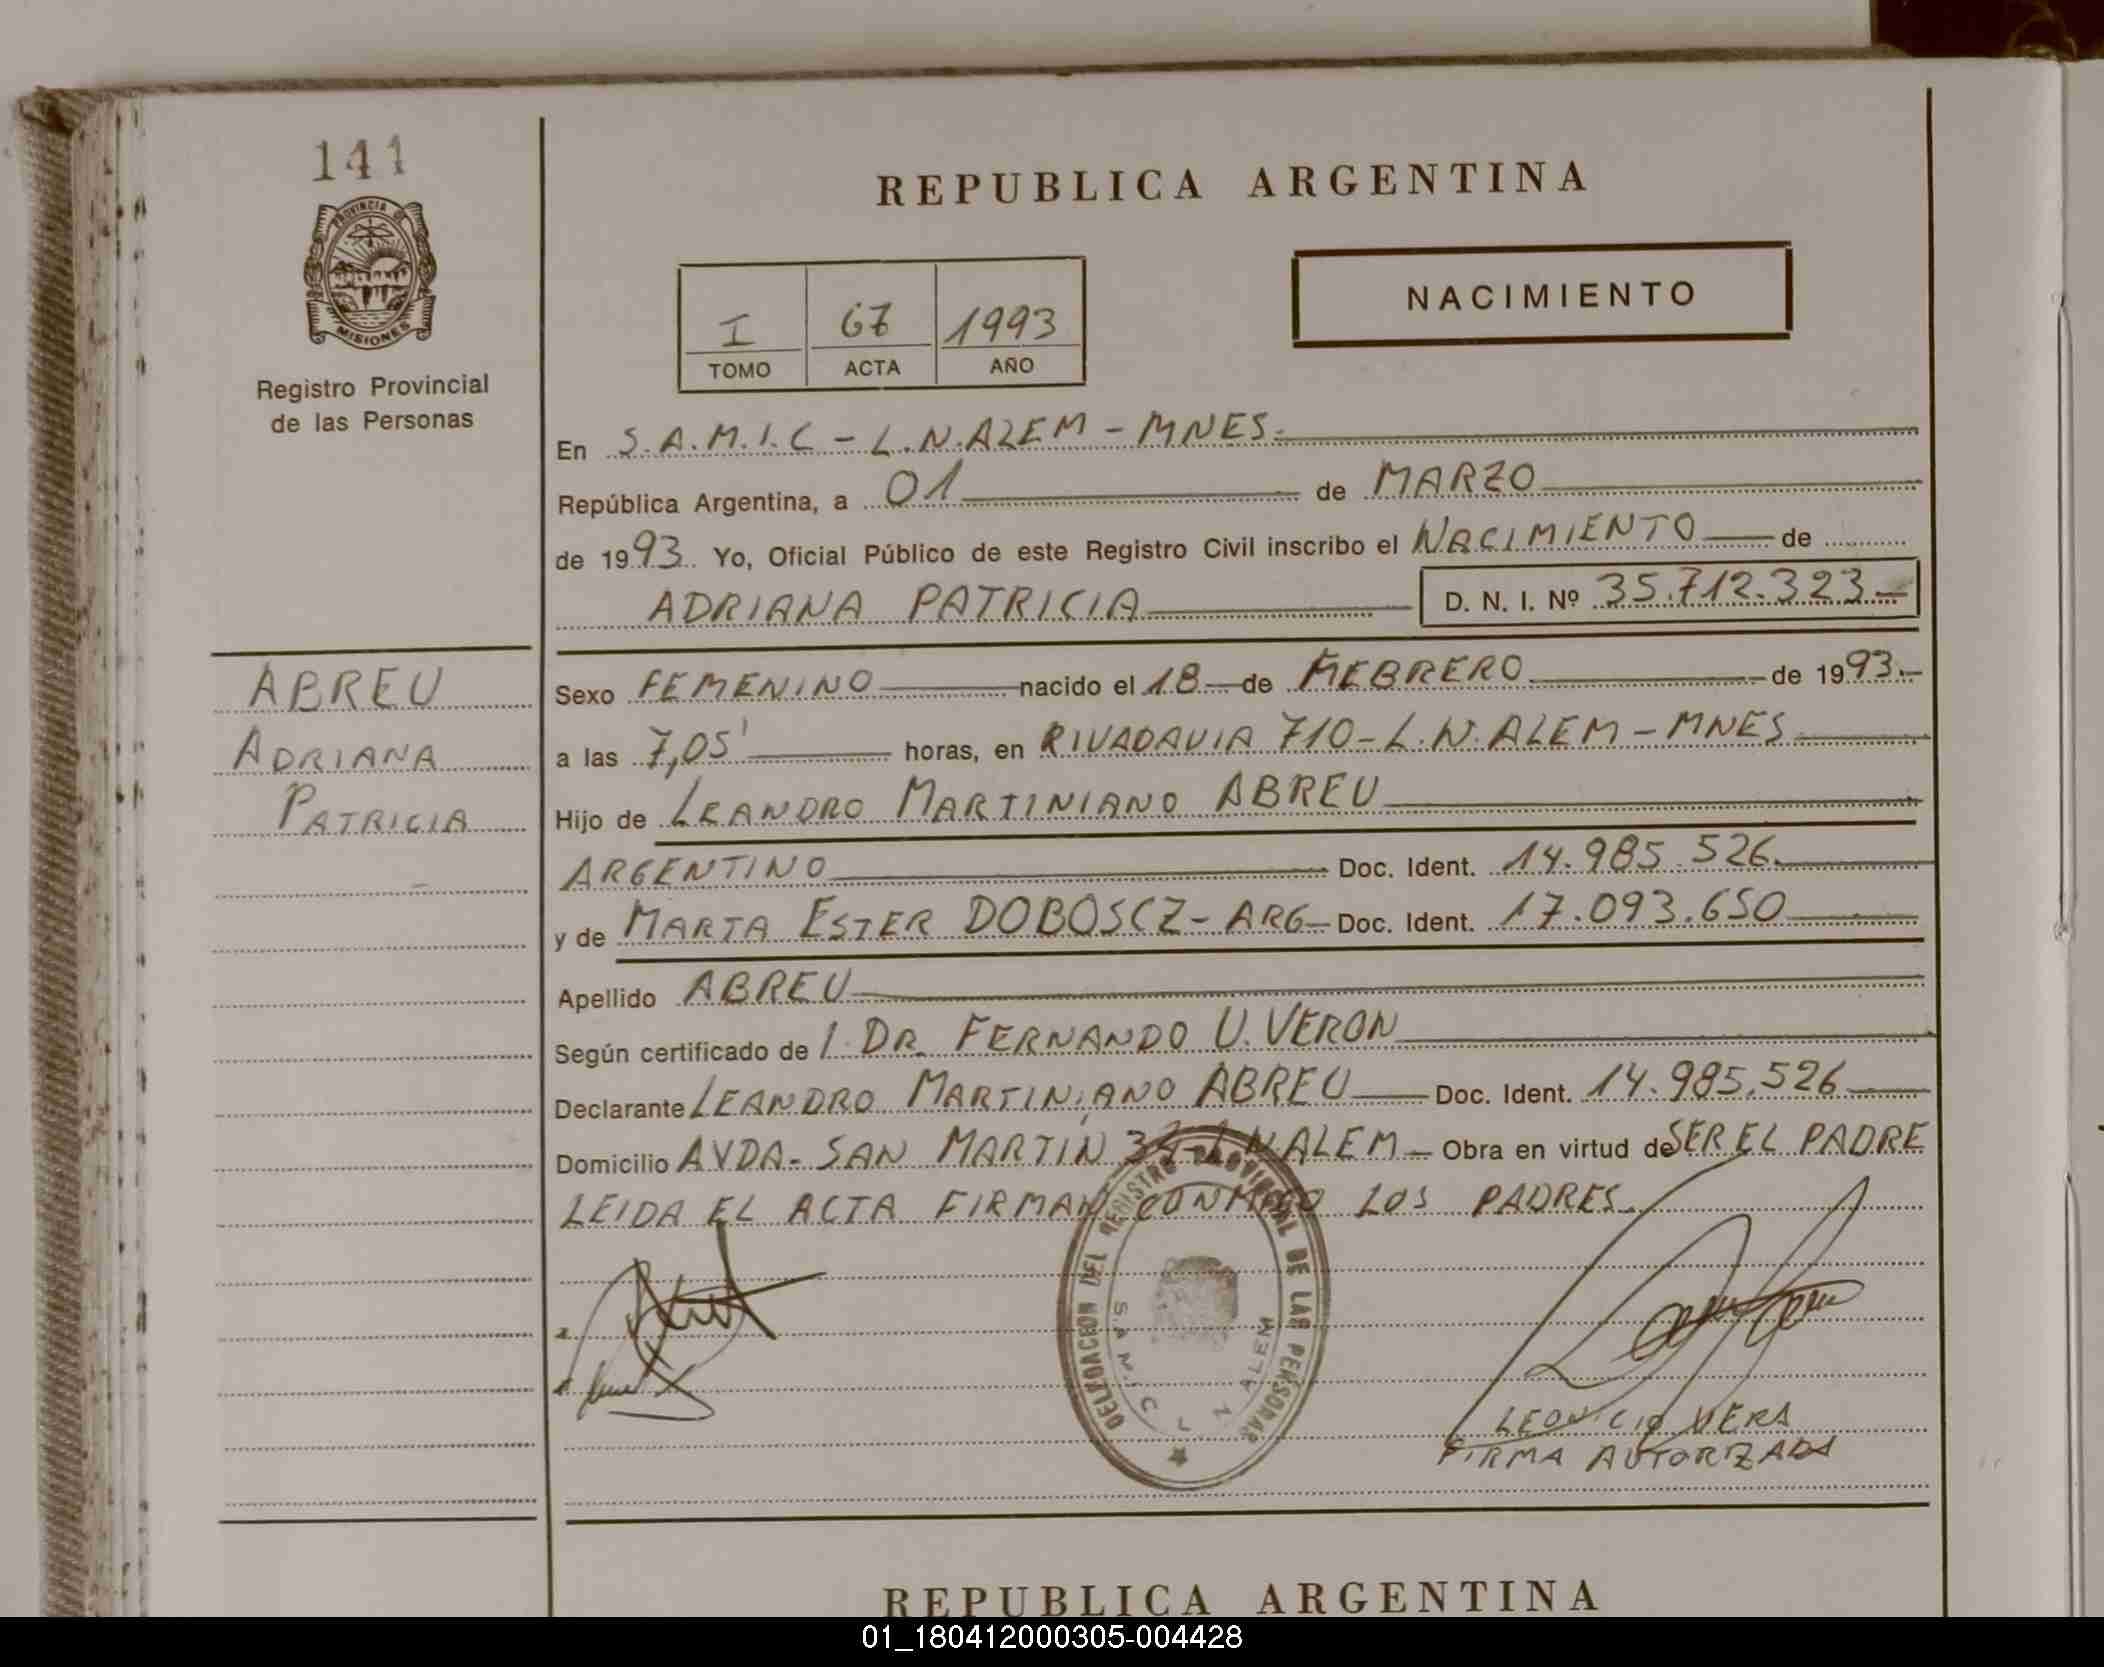 141
PROVINCIA DE
MISIONES
Registro Provincial
de las Personas
REPUBLICA ARGENTINA
NACIMIENTO
I 67 1993
TOMO ACTA AÑO
En S.A.M.I.C - L.N.ALEM - MNES.
República Argentina, a 01 de MARZO
de 1993. Yo, Oficial Público de este Registro Civil inscribo el NACIMIENTO de
ADRIANA PATRICIA D. N. I. Nº 35.712.323.-
ABREU
ADRIANA
PATRICIA
Sexo FEMENINO nacido el 18 de FEBRERO de 1993.-
a las 7,05' horas, en RIVADAVIA 710 - L.N. ALEM - MNES
Hijo de LEANDRO MARTINIANO ABREU
ARGENTINO Doc. Ident. 14.985.526.
y de MARTA ESTER DOBOSCZ - ARG - Doc. Ident. 17.093.650
Apellido ABREU
Según certificado de l. DR. FERNANDO U. VERON
Declarante LEANDRO MARTINIANO ABREU Doc. Ident. 14.985.526
Domicilio AVDA. SAN MARTIN L.N.ALEM - Obra en virtud de SER EL PADRE
LEIDA EL ACTA FIRMAN CONMIGO LOS PADRES.
DELEGACION DEL REGISTRO PROVINCIAL DE LAS PERSONAS
S.A.M.I.C L.N. ALEM
LEONICIO VERA
FIRMA AUTORIZADA
REPUBLICA ARGENTINA
01_180412000305-004428